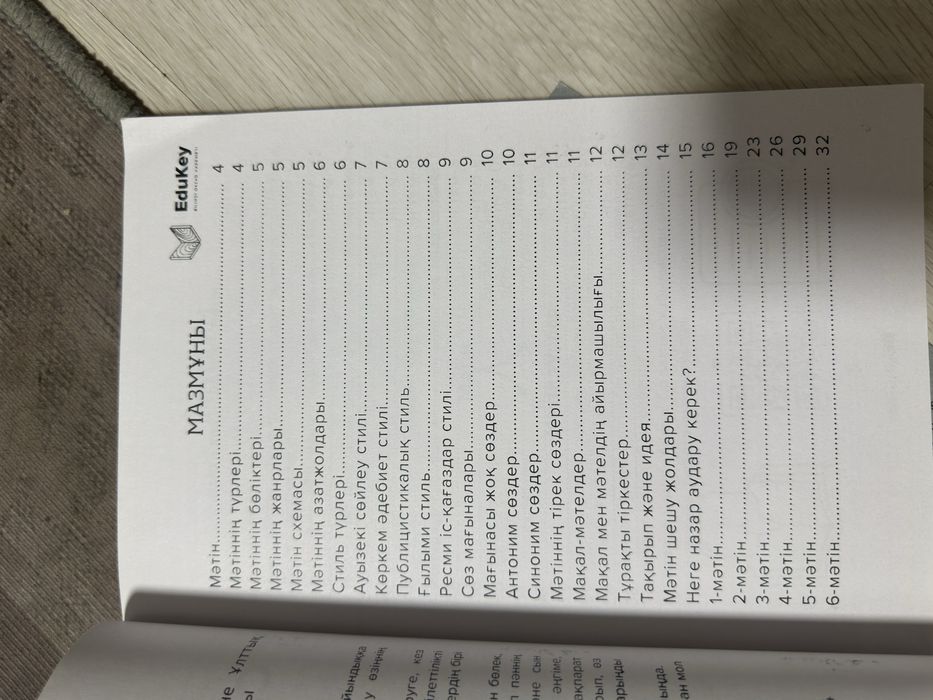 EduKey
МАЗМҰНЫ
Мәтін 4
Мәтіннің түрлері 4
Мәтіннің бөліктері 5
Мәтіннің жанрлары 5
Мәтін схемасы 5
Мәтіннің азатжолдары 6
Стиль түрлері 6
Ауызекі сөйлеу стилі 7
Көркем әдебиет стилі 7
Публицистикалық стиль 8
Ғылыми стиль 8
Ресми іс-қағаздар стилі 9
Сөз мағыналары 9
Мағынасы жоқ сөздер 10
Антоним сөздер 10
Синоним сөздер 11
Мәтіннің тірек сөздері 11
Мақал-мәтелдер 11
Мақал мен мәтелдің айырмашылығы 12
Тұрақты тіркестер 12
Тақырып және идея 13
Мәтін шешу жолдары 14
Неге назар аудару керек? 15
1-мәтін 16
2-мәтін 19
3-мәтін 23
4-мәтін 26
5-мәтін 29
6-мәтін 32
не Ұлттық
өзіннің
руге, кез
ердің бірі
н бөлек,
пәннің
не сын
әңгіме,
ақпарат
рып, өз
арынды
ында.
ан мол